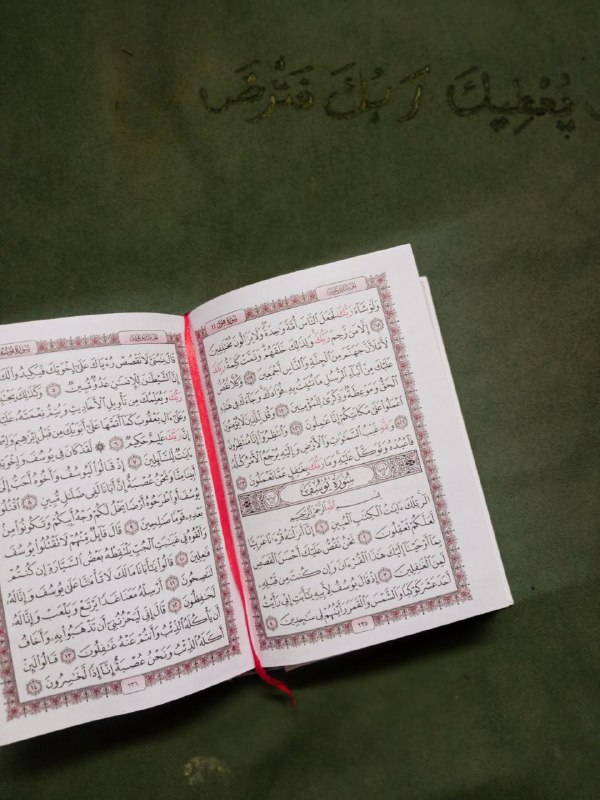 يُعْطِيكَ رَبُّكَ فَتَرْضَ
سُورَةُ هُودٍ ١١
وَلَوْ شَآءَ رَبُّكَ لَجَعَلَ ٱلنَّاسَ أُمَّةً وَٰحِدَةً وَلَا يَزَالُونَ مُخْتَلِفِينَ
١١٨ إِلَّا مَن رَّحِمَ رَبُّكَ وَلِذَٰلِكَ خَلَقَهُمْ وَتَمَّتْ كَلِمَةُ رَبِّكَ
لَأَمْلَأَنَّ جَهَنَّمَ مِنَ ٱلْجِنَّةِ وَٱلنَّاسِ أَجْمَعِينَ ١١٩ وَكُلًّا نَّقُصُّ
عَلَيْكَ مِنْ أَنۢبَآءِ ٱلرُّسُلِ مَا نُثَبِّتُ بِهِۦ فُؤَادَكَ وَجَآءَكَ فِى هَٰذِهِ
ٱلْحَقُّ وَمَوْعِظَةٌ وَذِكْرَىٰ لِلْمُؤْمِنِينَ ١٢٠ وَقُل لِّلَّذِينَ لَا يُؤْمِنُونَ
ٱعْمَلُوا۟ عَلَىٰ مَكَانَتِكُمْ إِنَّا عَٰمِلُونَ ١٢١ وَٱنتَظِرُوٓا۟ إِنَّا مُنتَظِرُونَ
١٢٢ وَلِلَّهِ غَيْبُ ٱلسَّمَٰوَٰتِ وَٱلْأَرْضِ وَإِلَيْهِ يُرْجَعُ ٱلْأَمْرُ كُلُّهُۥ
فَٱعْبُدْهُ وَتَوَكَّلْ عَلَيْهِ وَمَا رَبُّكَ بِغَٰفِلٍ عَمَّا تَعْمَلُونَ ١٢٣
سُورَةُ يُوسُفَ
بِسْمِ ٱللَّهِ ٱلرَّحْمَٰنِ ٱلرَّحِيمِ
الٓر تِلْكَ ءَايَٰتُ ٱلْكِتَٰبِ ٱلْمُبِينِ ١ إِنَّآ أَنزَلْنَٰهُ قُرْءَٰنًا عَرَبِيًّا
لَّعَلَّكُمْ تَعْقِلُونَ ٢ نَحْنُ نَقُصُّ عَلَيْكَ أَحْسَنَ ٱلْقَصَصِ
بِمَآ أَوْحَيْنَآ إِلَيْكَ هَٰذَا ٱلْقُرْءَانَ وَإِن كُنتَ مِن قَبْلِهِۦ
لَمِنَ ٱلْغَٰفِلِينَ ٣ إِذْ قَالَ يُوسُفُ لِأَبِيهِ يَٰٓأَبَتِ إِنِّى رَأَيْتُ
أَحَدَ عَشَرَ كَوْكَبًا وَٱلشَّمْسَ وَٱلْقَمَرَ رَأَيْتُهُمْ لِى سَٰجِدِينَ ٤
٢٣٥
قَالَ يَٰبُنَىَّ لَا تَقْصُصْ رُءْيَاكَ عَلَىٰٓ إِخْوَتِكَ فَيَكِيدُوا۟ لَكَ
إِنَّ ٱلشَّيْطَٰنَ لِلْإِنسَٰنِ عَدُوٌّ مُّبِينٌ ٥ وَكَذَٰلِكَ
رَبُّكَ وَيُعَلِّمُكَ مِن تَأْوِيلِ ٱلْأَحَادِيثِ وَيُتِمُّ نِعْمَتَهُۥ عَلَيْكَ
وَعَلَىٰٓ ءَالِ يَعْقُوبَ كَمَآ أَتَمَّهَا عَلَىٰٓ أَبَوَيْكَ مِن قَبْلُ إِبْرَٰهِيمَ
إِنَّ رَبَّكَ عَلِيمٌ حَكِيمٌ ٦ لَّقَدْ كَانَ فِى يُوسُفَ وَإِخْوَتِهِۦٓ
ءَايَٰتٌ لِّلسَّآئِلِينَ ٧ إِذْ قَالُوا۟ لَيُوسُفُ وَأَخُوهُ أَحَبُّ إِلَىٰٓ
أَبِينَا مِنَّا وَنَحْنُ عُصْبَةٌ إِنَّ أَبَانَا لَفِى ضَلَٰلٍ مُّبِينٍ ٨ ٱقْتُلُوا۟
يُوسُفَ أَوِ ٱطْرَحُوهُ أَرْضًا يَخْلُ لَكُمْ وَجْهُ أَبِيكُمْ وَتَكُونُوا۟ مِنۢ
بَعْدِهِۦ قَوْمًا صَٰلِحِينَ ٩ قَالَ قَآئِلٌ مِّنْهُمْ لَا تَقْتُلُوا۟ يُوسُفَ
وَأَلْقُوهُ فِى غَيَٰبَتِ ٱلْجُبِّ يَلْتَقِطْهُ بَعْضُ ٱلسَّيَّارَةِ إِن كُنتُمْ
فَٰعِلِينَ ١٠ قَالُوا۟ يَٰٓأَبَانَا مَا لَكَ لَا تَأْمَ۫نَّا عَلَىٰ يُوسُفَ وَإِنَّا لَهُۥ
لَنَٰصِحُونَ ١١ أَرْسِلْهُ مَعَنَا غَدًا يَرْتَعْ وَيَلْعَبْ وَإِنَّا لَهُۥ
لَحَٰفِظُونَ ١٢ قَالَ إِنِّى لَيَحْزُنُنِىٓ أَن تَذْهَبُوا۟ بِهِۦ وَأَخَافُ
أَن يَأْكُلَهُ ٱلذِّئْبُ وَأَنتُمْ عَنْهُ غَٰفِلُونَ ١٣ قَالُوا۟ لَئِنْ
أَكَلَهُ ٱلذِّئْبُ وَنَحْنُ عُصْبَةٌ إِنَّآ إِذًا لَّخَٰسِرُونَ ١٤
٢٣٦